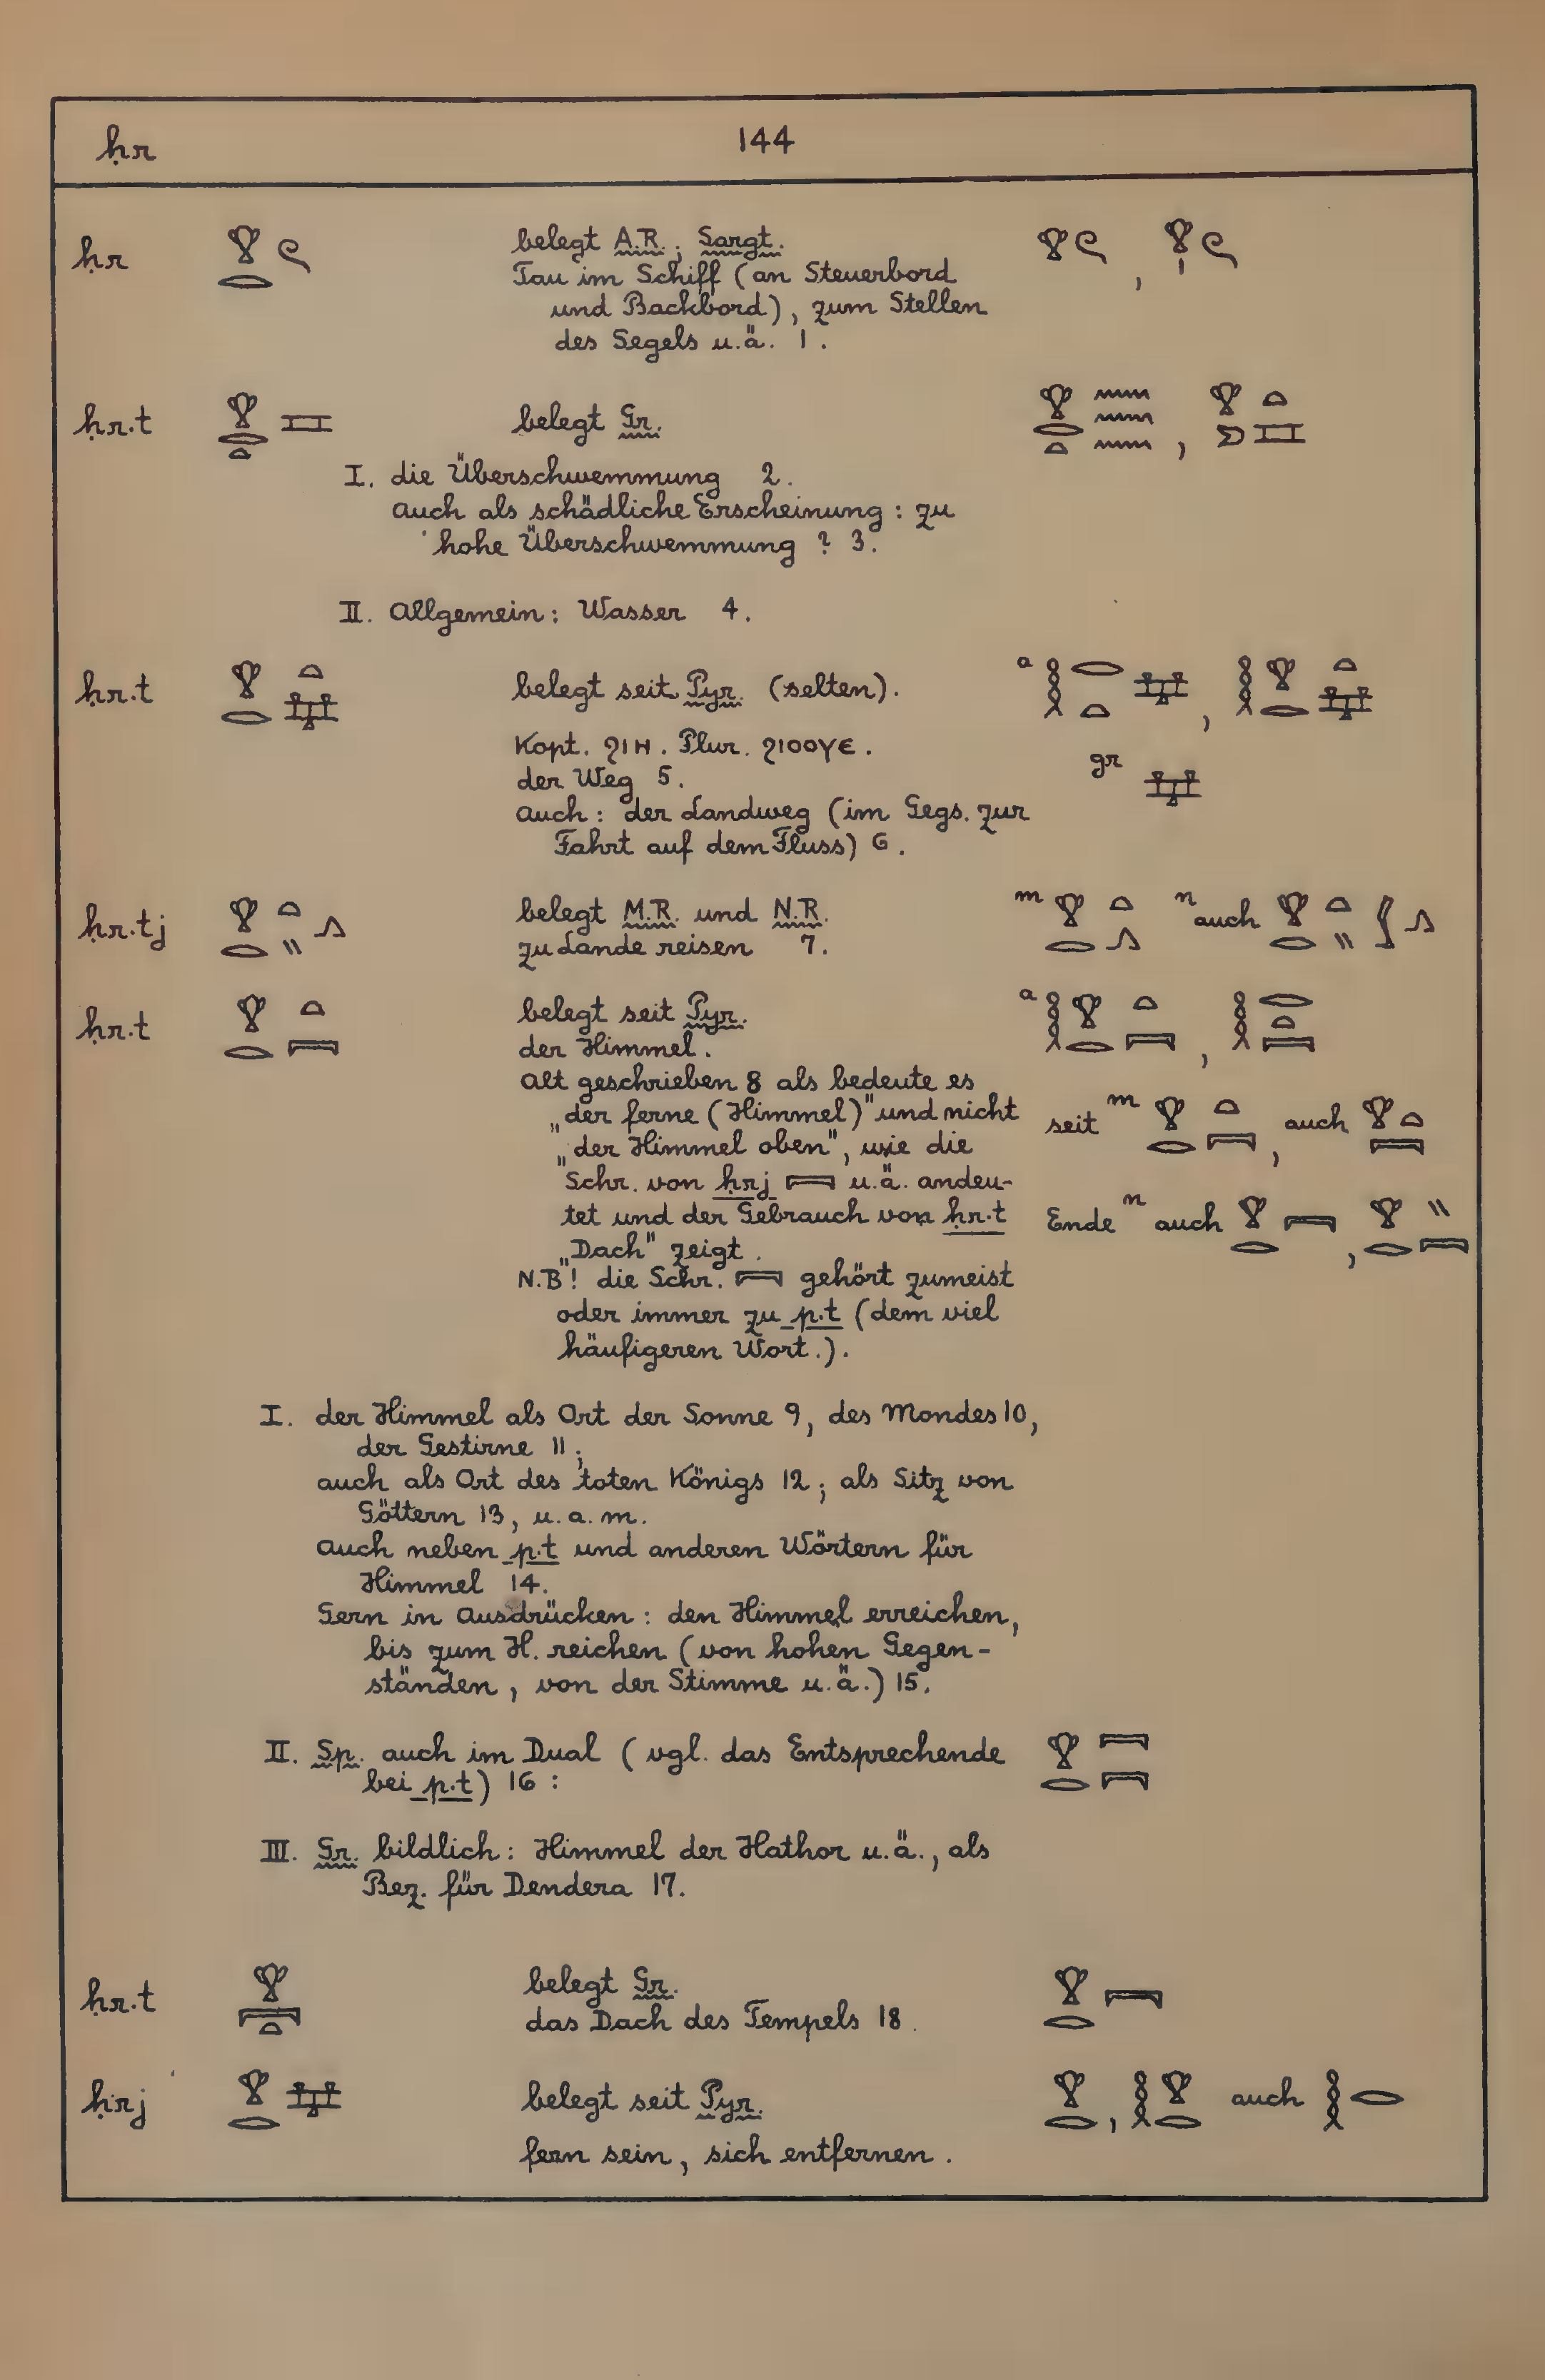 ḥr 144
ḥr 𓁷𓂋𓍢 belegt A.R.; Sargt. 𓁷𓍢 , 𓁷𓏤𓍢
Tau im Schiff (an Steuerbord
und Backbord), zum Stellen
des Segels u.ä. 1.
ḥr.t belegt Gr.
I. die Überschwemmung 2.
auch als schädliche Erscheinung: zu
hohe Überschwemmung ? 3.
II. Allgemein: Wasser 4.
ḥr.t belegt seit Pyr. (selten). a
Kopt. ϩⲓⲏ. Plur. ϩⲓⲟⲟⲩⲉ.
gr
der Weg 5.
auch: der Landweg (im Gegs. zur
Fahrt auf dem Fluss) 6.
ḥr.tj belegt M.R. und N.R. m n auch
zu Lande reisen 7.
ḥr.t belegt seit Pyr. a
der Himmel.
Alt geschrieben 8 als bedeute es
„der ferne (Himmel)" und nicht seit m auch
„der Himmel oben", wie die
Schr. von ḥrj 𓇯 u.ä. andeu-
tet und der Gebrauch von ḥr.t Ende n auch
„Dach" zeigt.
N.B! die Schr. 𓇯 gehört zumeist
oder immer zu p.t (dem viel
häufigeren Wort.).
I. der Himmel als Ort der Sonne 9, des Mondes 10,
der Gestirne 11;
auch als Ort des toten Königs 12; als Sitz von
Göttern 13, u.a.m.
auch neben p.t und anderen Wörtern für
Himmel 14.
Gern in Ausdrücken: den Himmel erreichen,
bis zum H. reichen (von hohen Gegen-
ständen, von der Stimme u.ä.) 15.
II. Sp. auch im Dual (vgl. das Entsprechende
bei p.t) 16:
III. Gr. bildlich: Himmel der Hathor u.ä., als
Bez. für Dendera 17.
ḥr.t belegt Gr.
das Dach des Tempels 18.
ḥrj belegt seit Pyr. auch
fern sein, sich entfernen.